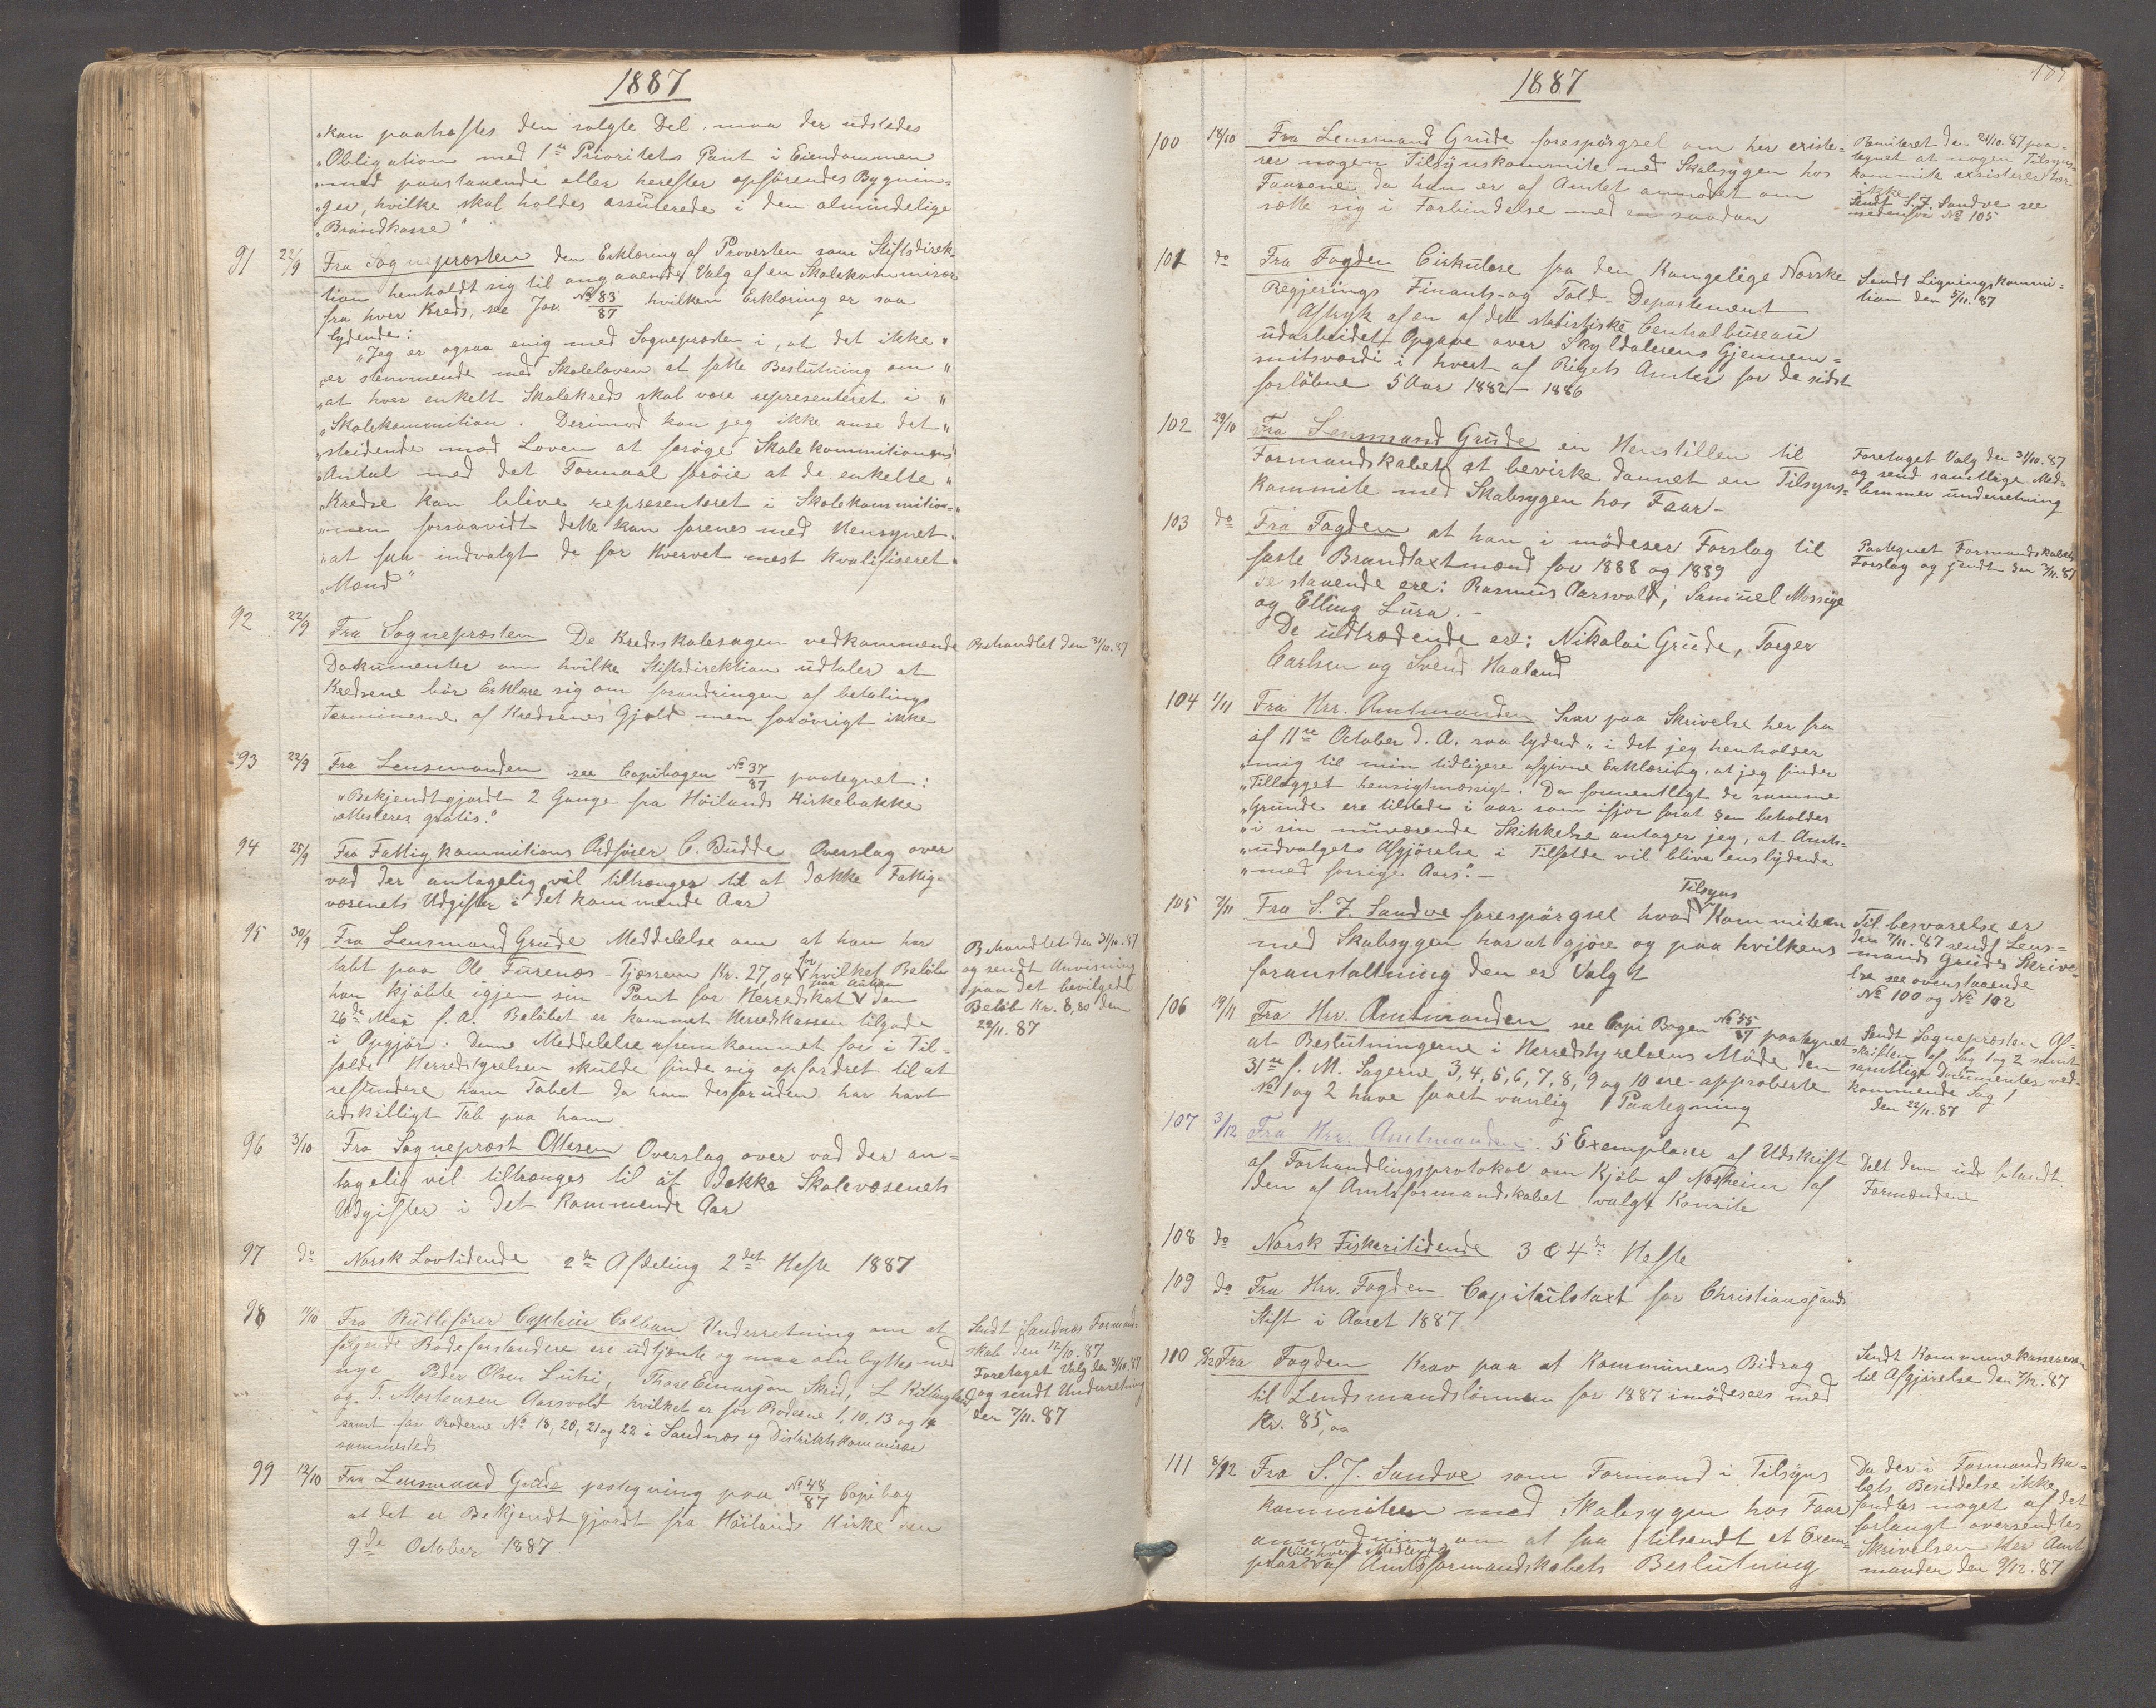 1887
„kan paahæftes den solgte Del, maa der udstedes
„Obligation med 1ste Prioritets Pant i Eiendommen
„med paastaaende eller herefter opførendes Bygnin=
„ger, hvilke skal holdes assurerede i den almindelige
„Brandkasse"
91 22/9 Fra Sognepræsten den Erklæring af Provsten som Stiftsdirek-
tion henholdt sig til angaaende Valg af en Skolekommisær
fra hver Kreds, see Jor. No 83/87 hvilken Erklæring er saa
lydende:
„Jeg er ogsaa enig med Sognepræsten i, at det ikke "
„er stemmende med Skoleloven at fatte Beslutning om "
„at hver enkelt Skolekreds skal være representeret i "
„Skolekommition. Derimod kan jeg ikke anse det "
„stridende mod Loven at forøge Skolekommitionens
„Antal med det Formaal for øie at de enkelte "
„Kredse kan blive representeret i Skolekommitio-
„nen forsaavidt dette kan forenes med Hensynet
„at faa indvalgt de for Hvervet mest kvalifiseret "
„Mænd"
92 22/9 Fra Sognepræsten De Kredsskolesagen vedkommende Behandlet den 31/10.87
Dokumenter om hvilke Stiftsdirektion udtaler at
Kredsene bør Erklære sig om forandringen af betalings
terminerne af Kredsenes Gjæld men forøvrigt ikke
93 22/9 Fra Lensmanden see Copibogen No 37/87 paategnet:
„Bekjendtgjordt 2 Gange fra Høilands Kirkebakke
„attesteres gratis."
94 25/9 Fra Fattigkommitions Ordfører C. Budde Overslag over
vad der antagelig vil tiltrænges til at dække Fattig-
væsenets Udgifter i det kommende Aar
95 30/9 Fra Lensmand Grude Meddelelse om at han har
tabt paa Ole Furenæs - Tjæssem Kr. 27,04 for hvilket Beløb
han kjøbte igjen sin Pant for Herredskat paa Auktion den
26de Mai f. A. Beløbet er kommet Herredskassen tilgode
i Opgjør. Denne Meddelelse afremkommet for i Til-
fælde Herredstyrelsen skulde finde sig opfordret til at
refundere ham Tabet da han desforuden har havt
adskilligt Tab paa ham
Behandlet den 31/10.87
og sendt Anvisning
paa det bevilgede
Beløb Kr. 8,80 den
22/11.87
96 3/10 Fra Sognepræst Ottesen Overslag over vad der an=
tagelig vil tiltrænges til at dække Skolevæsenets
Udgifter i det kommende Aar
97 do Norsk Lovtidende 2den Afdeling 2det Hefte 1887
98 11/10 Fra Rullefører Captein Underretning om at
følgende Rodeforstandere ere udtjente og maa ombyttes med
nye Peder Olsen Lutsi, Thore Einarsen Skeid, L
og T. Mortensen Aarsvold hvilket er for Roderne 1, 10, 13 og 14
samt for Roderne No 18, 20, 21 og 22 i Sandnæs og Distriktskommisær
sammesteds
Sendt Sandnæs Formand-
skab den 12/10.87
Foretaget Valg den 31/10.87
og sendt Underretning
den 7/11.87
99 12/10 Fra Lensmand Grude pategning paa No 48/87 Copibog
at det er Bekjendtgjordt fra Høilands Kirke den
9de October 1887
1887
100 18/10 Fra Lensmand Grude forespørgsel om her existe=
rer nogen Tilsynskommite med Skabsygen hos
Faarene da han er af Amtet anmodet om
sætte sig i Forbindelse med en saadan
Remiteret den 24/10.87 paa-
tegnet at nogen Tilsyns-
kommite exsisterer her
ikke
Sendt S. J. Sandve see
nedenfor No 105
101 do Fra Fogden Cirkulære fra den Kongelige Norske
Regjerings Finants- og Told-Departement
Aftryk af en af det statistiske Centralbureau
udarbeidet Opgave over Skylddalerens Gjennem=
snitsværdi i hvert af Rigets Amter for de sidst
forløbne 5 Aar 1882 - 1886
Sendt Ligningskommi-
tion den 5/11.87
102 29/10 Fra Lensmand Grude en Henstillen til
Formandskabet at bevirke dannet en Tilsyns=
kommite med Skabsygen hos Faar -
Foretaget Valg den 31/10.87
og send samtlige Med-
lemmer underretning
103 do Fra Fogden at han i mødeser Forslag til
faste Brandtaxtmænd for 1888 og 1889
Paategnet Formandskabets
Forslag og sendt den 3/11.87
se staaende ere: Rasmus Aarsvold, Samuel Mossige
og Elling Lura. -
De udtrædende ere: Nikolai Grude, Torger
Carlsen og Svend Haaland
104 1/11 Fra Hrr. Amtmanden Svar paa Skrivelse her fra
af 11te October d. A. saa lydend „i det jeg henholder
„mig til min tidligere afgivne Erklæring, at jeg finder
„Tillægget hensigtmæssigt. Da formentligt de samme
„Grunde ere tilstede i aar som ifjor forat den beholdes
„i sin nuværende Skikkelse antager jeg, at Amts-
„udvalgets Afgjørelse i Tilfælde vil blive enslydende
„med forrige Aars". -
105 7/11 Fra S. J. Sandve forespørgsel hvad Tilsyns Kommiteen
med Skabsygen har at gjøre og paa hvilkens
foranstaltning den er Valgt
Til besvarelse er
den 7/11.87 sendt Lens-
mands Grudes Skrive-
lse see ovenstaaende
No 100 og No 102
106 19/11 Fra Hrr. Amtmanden see Copi Bogen No 55/87 paategnet
at Beslutningerne i Herredstyrelsens Møde den
31te f. M. Sagerne 3, 4, 5, 6, 7, 8, 9 og 10 ere approberte
No 1 og 2 have faaet vanlig Paategning
Sendt Sognepræsten Af-
skriften af Sag 1 og 2 samt
samtlige Documenter ved-
kommende Sag 1
den 22/11.87
107 3/12 Fra Hrr. Amtmanden. 5 Exemplarer af Udskrift
af Forhandlingsprotokol om Kjøb af Næsheim af
den af Amtsformandskabet valgt Komite
Delt dem ud blandt
Formændene
108 do Norsk Fiskeritidende 3 & 4de Hefte
109 do Fra Hrr. Fogden Capitulstaxt for Christianssands
Stift i Aaret 1887
110 Fra Fogden Krav paa at Kommunens Bidrag
til Lendsmandslønnen for 1887 imødesees med
Kr. 85,00
Sendt Kommunekassereren
til Afgjørelse den 7/12.87
111 8/12 Fra S. J. Sandve som Formand i Tilsyns
kommiteen med Skabsygen hos Faar
anmodning om at faa tilsendt et Exem-
plar til hvert Medlem af Amtsformandskabets Beslutning
Da der i Formandska-
bets Besiddelse ikke
fandtes noget af det
forlangt oversendtes
Skrivelsen Her Amt
manden den 9/12.87